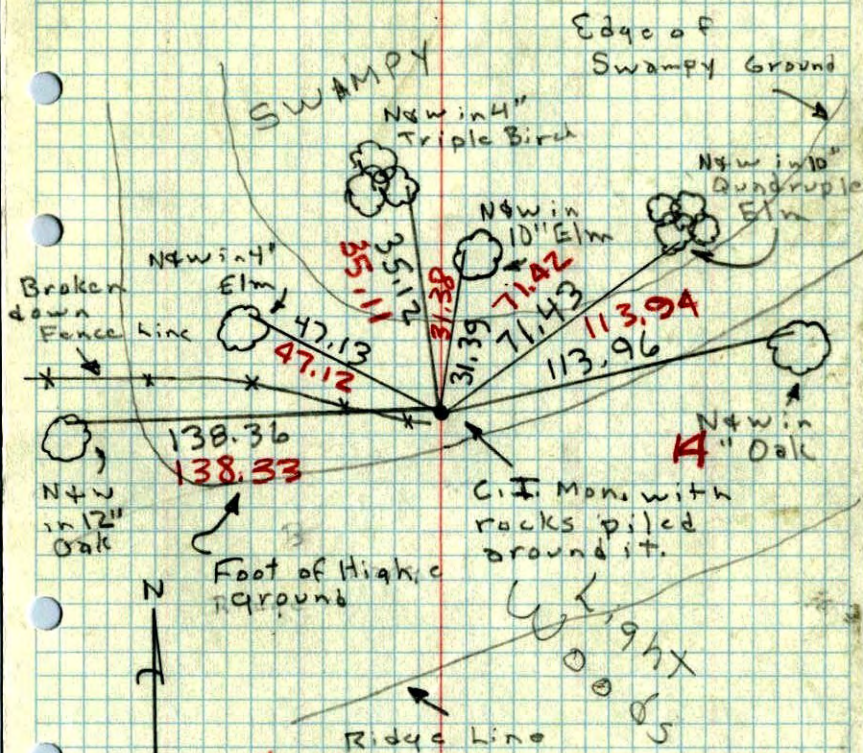 Edge of
Swampy Ground
SWAMPY
N&W in 4"
Triple Birch
N&W in 10"
Quadruple
Elm
N&W in
10" Elm
N&W in 4"
Elm
Broken
down
Fence Line
35.12
35.11
31.38
31.39
71.42
71.43
113.94
113.96
47.13
47.12
138.36
138.33
N&W
in 12"
Oak
N&W in
14" Oak
C.I. Mon. with
rocks piled
around it.
Foot of High
ground
Light
Woods
N
Ridge Line